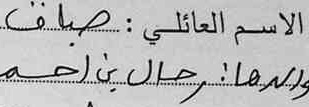 الاسم العائلي : صباف
والدها : رحال بن احمد